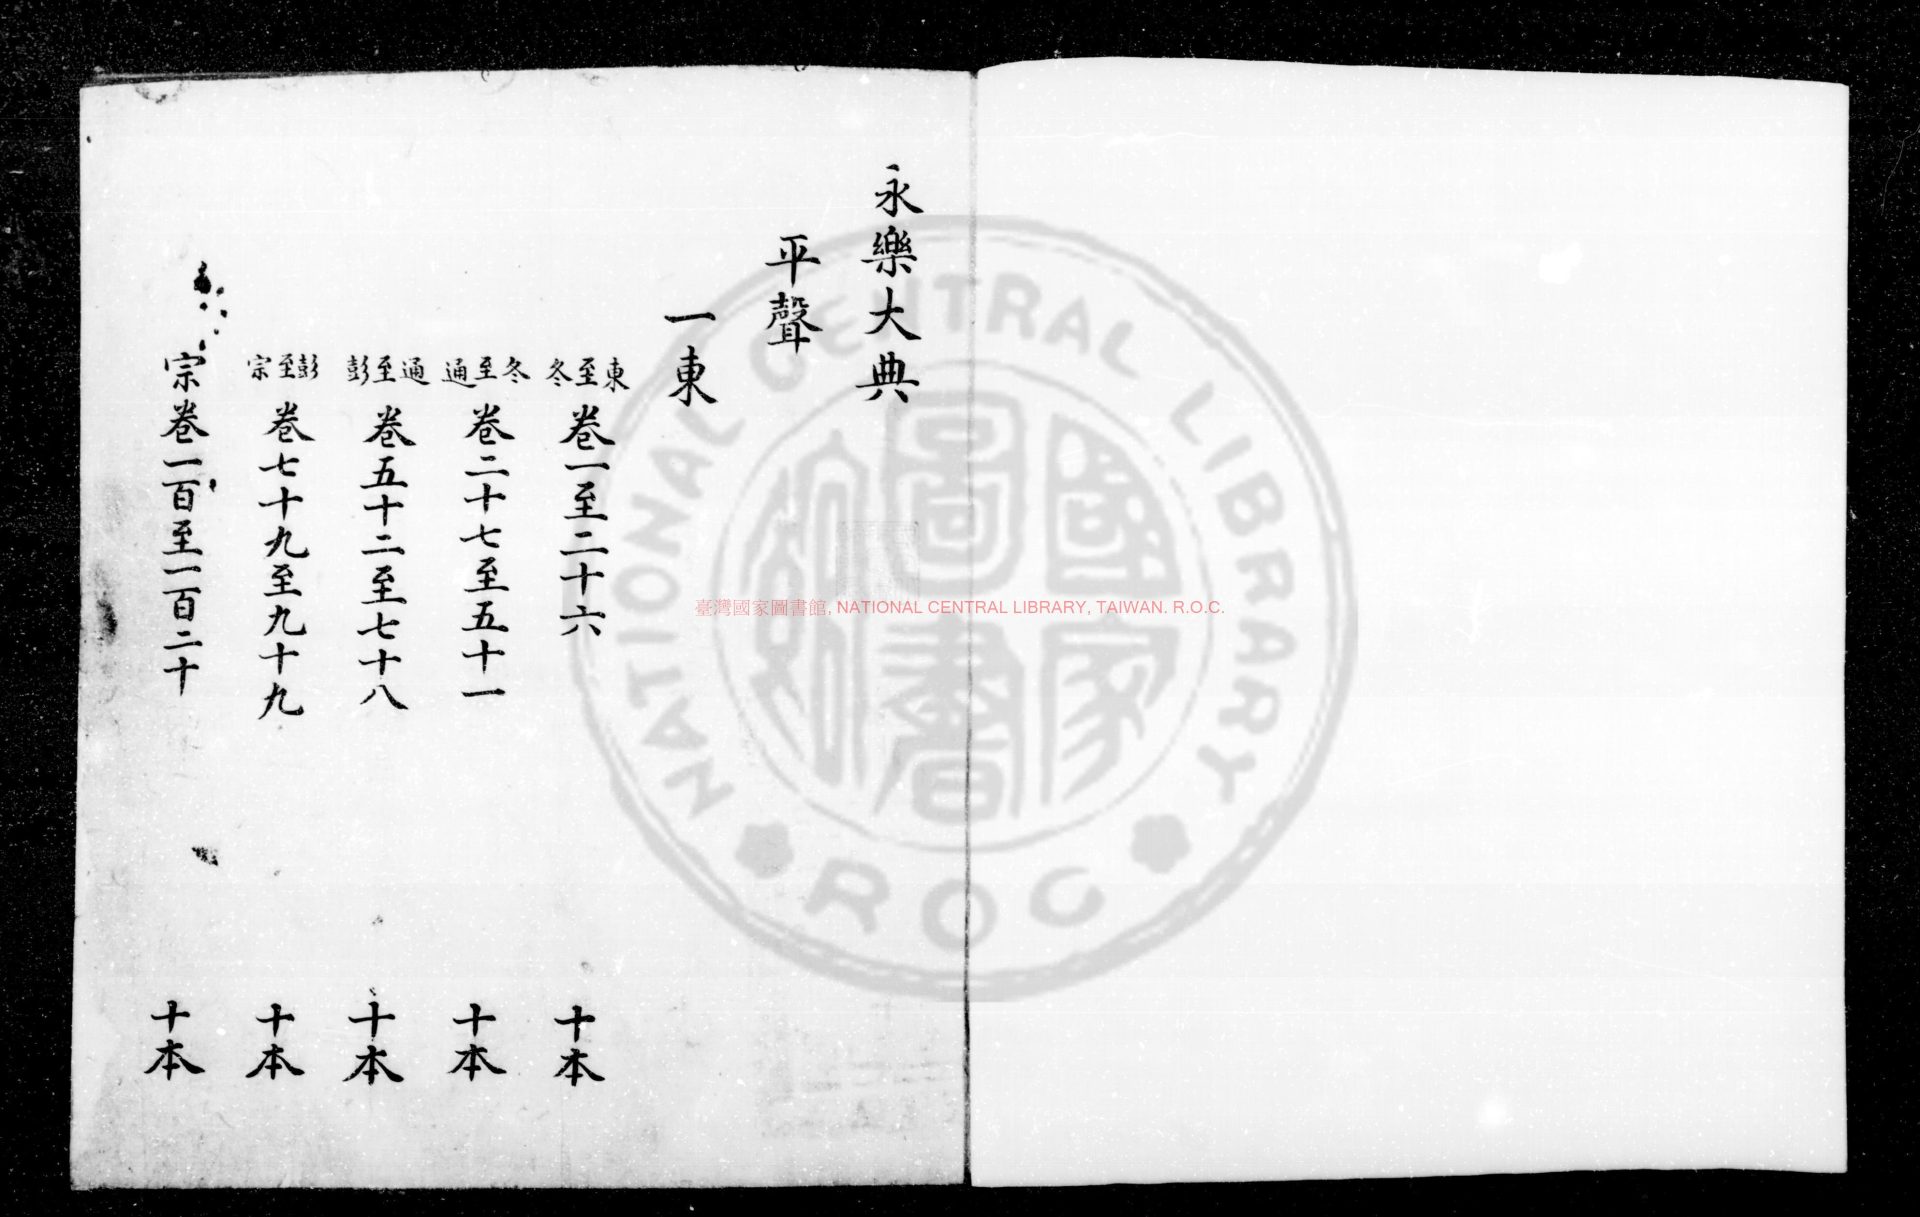 永樂大典
平聲
一東
東至冬 卷一至二十六 十本
冬至通 卷二十七至五十一 十本
通至彭 卷五十二至七十八 十本
彭至宗 卷七十九至九十九 十本
宗 卷一百至一百二十 十本
臺灣國家圖書館, NATIONAL CENTRAL LIBRARY, TAIWAN. R.O.C.
NATIONAL CENTRAL LIBRARY
ROC
國家圖書館